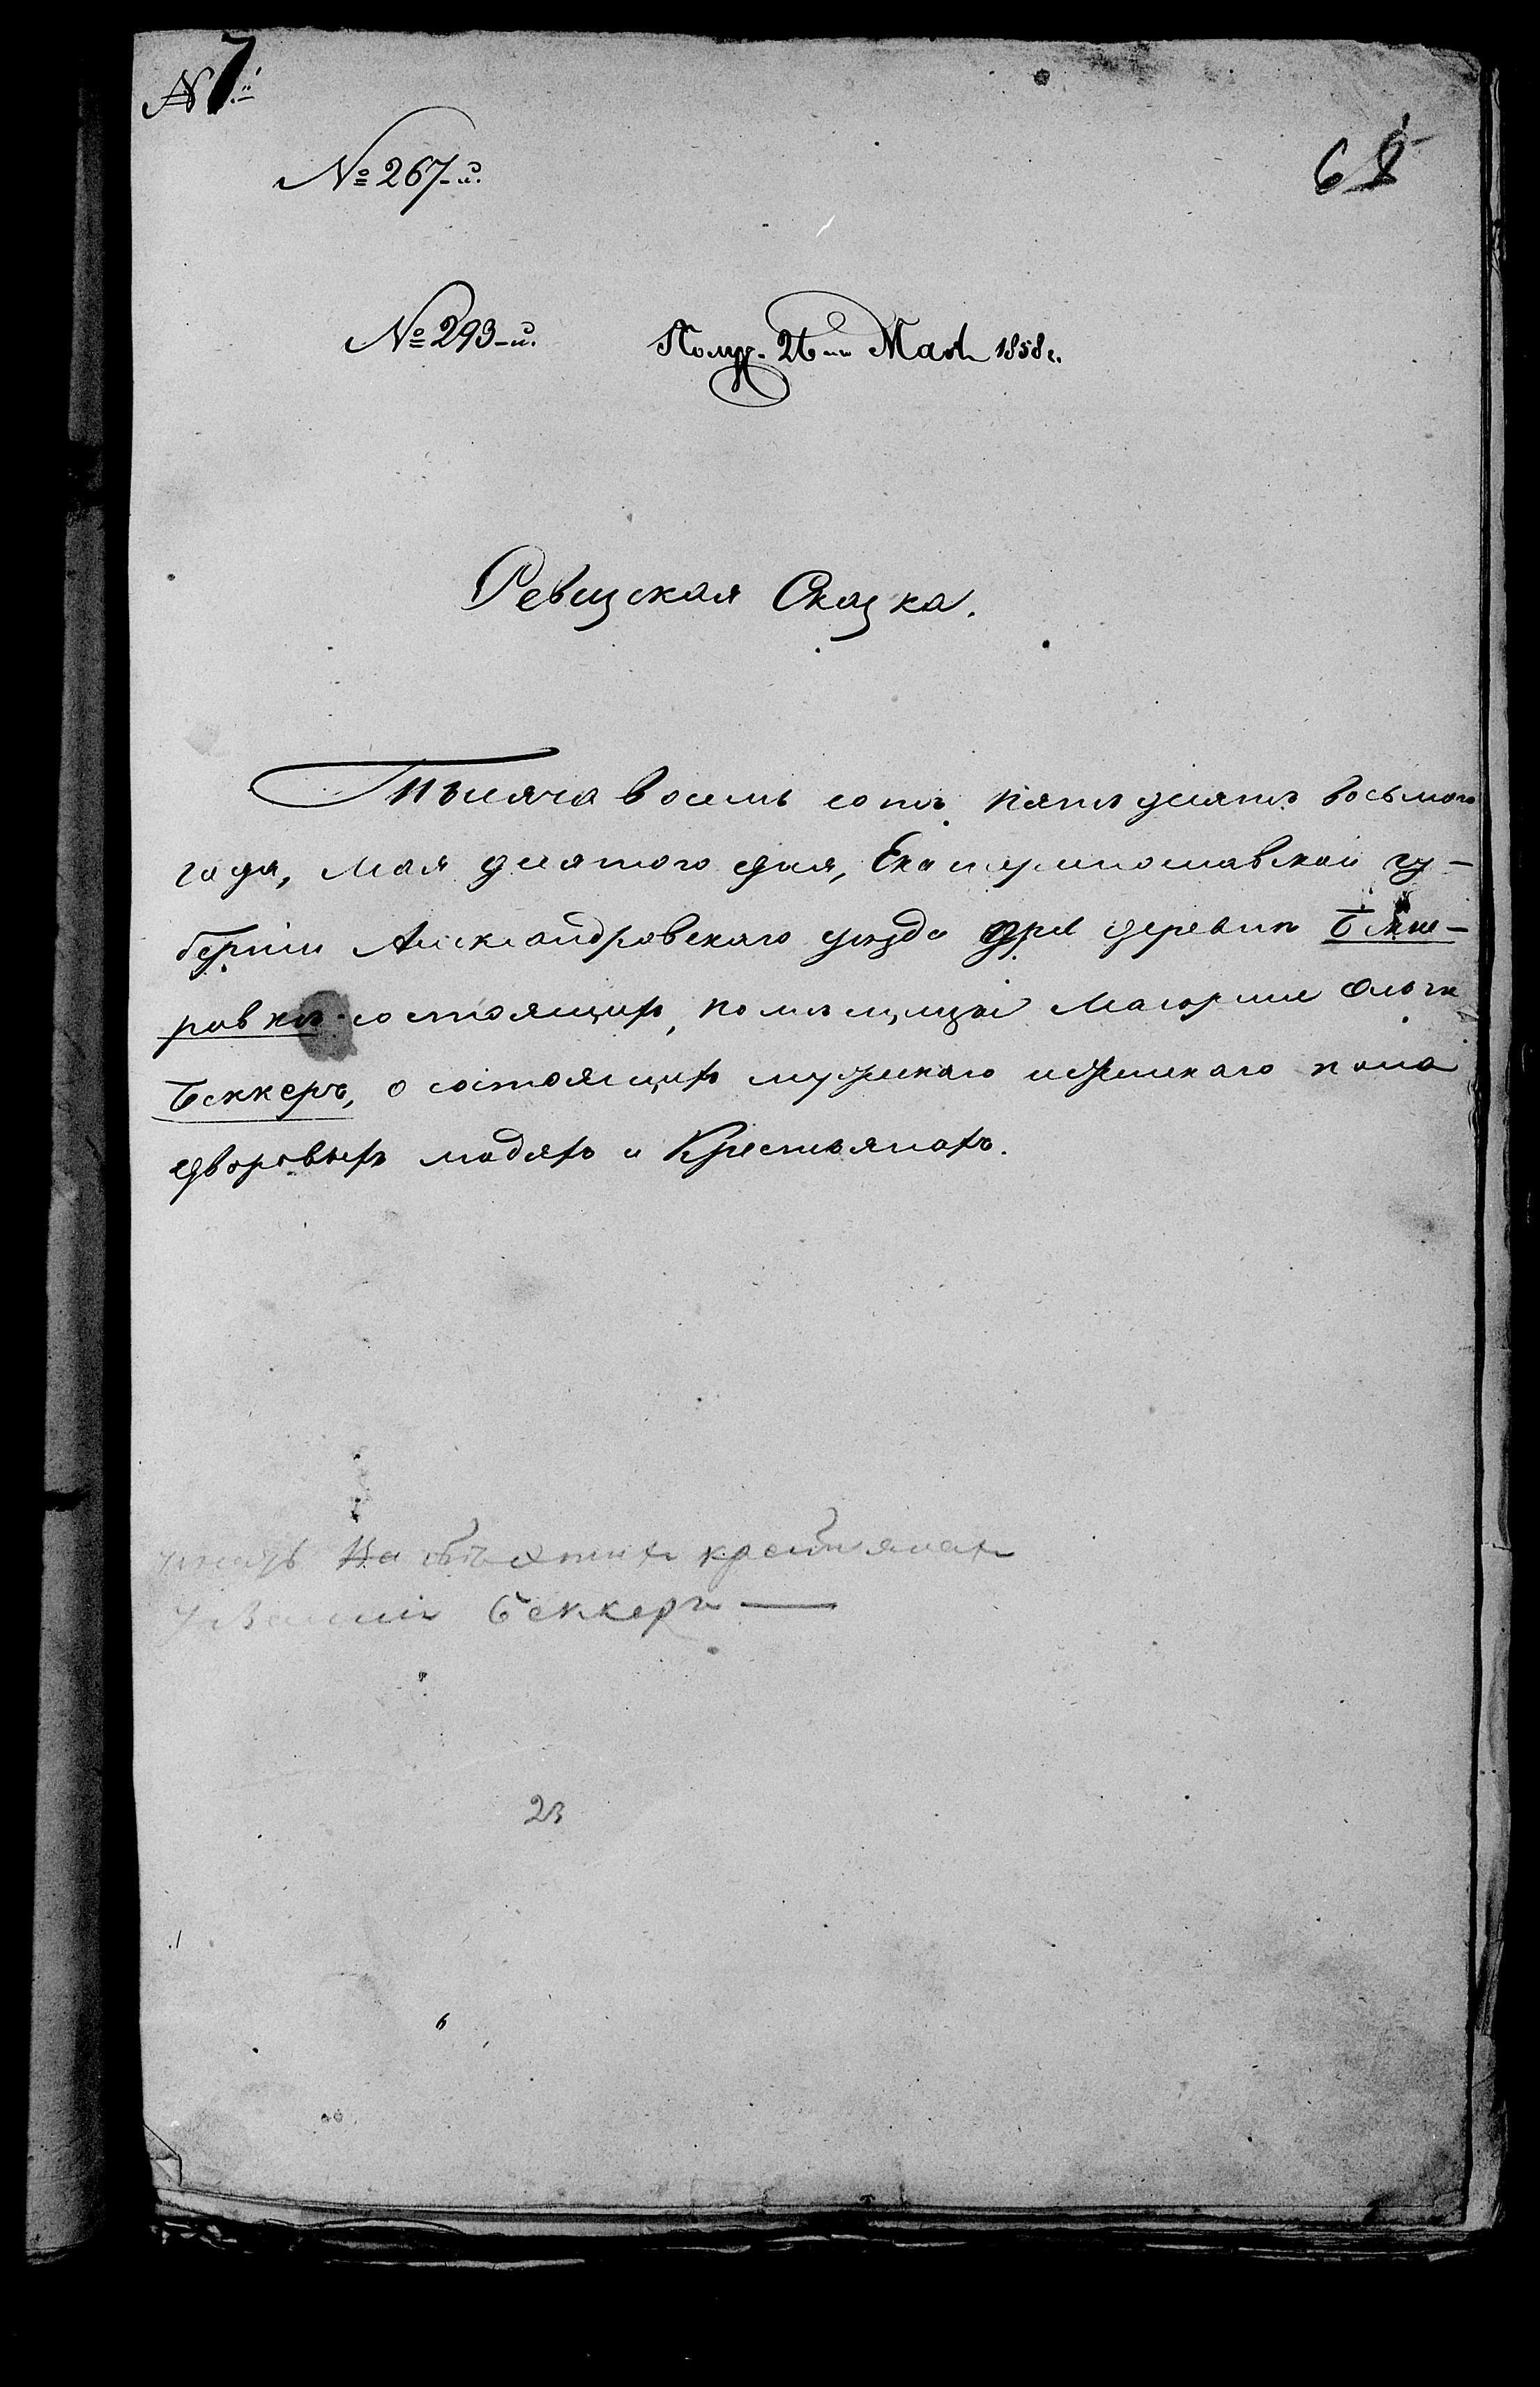 № 7.й
№ 267-й.
68
№ 293-й. Получ. 26-го Мая 1858 г.
Ревизская Сказка.
Тысяча восемь сотъ пятьдесятъ восьмого
года, Мая десятого дня, Екатеринославской гу-
берніи Александровскаго уѣзда деревни Бекке-
ровки состоящихъ, помѣщицы Маіорши Ольги
Беккеръ, о состоящихъ мужскаго и женскаго пола
дворовыхъ людяхъ и Крестьянахъ.
крестьянахъ
Беккеръ —
23